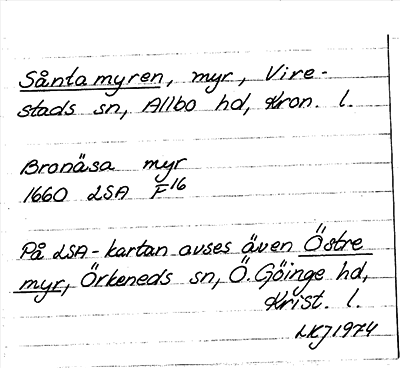 Såntamyren, myr, Vire-
stads sn, Allbo hd, Kron. l.
Bronäsa myr
1660 LSA F16
På LSA-kartan avses även Östre
myr, Örkeneds sn, Ö. Göinge hd,
Krist. l.
LKJ 1974